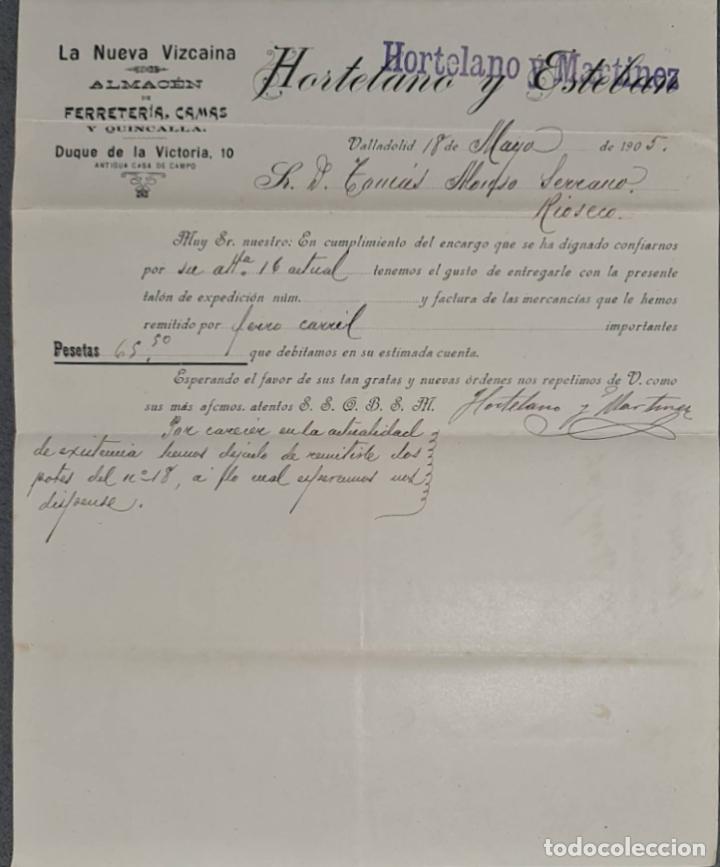 La Nueva Vizcaina
ALMACÉN
DE
FERRETERÍA, CAMAS
Y QUINCALLA.
Duque de la Victoria, 10
ANTIGUA CASA DE CAMPO
Hortelano y Esteban
Hortelano y Martinez
Valladolid 18 de Mayo de 1905.
Sr. D. Tomás Alonso Serrano.
Rioseco.
Muy Sr. nuestro: En cumplimiento del encargo que se ha dignado confiarnos
por su atta 16 actual tenemos el gusto de entregarle con la presente
talón de expedición núm. y factura de las mercancías que le hemos
remitido por ferro carril importantes
Pesetas 65,50 que debitamos en su estimada cuenta.
Esperando el favor de sus tan gratas y nuevas órdenes nos repetimos de V. como
sus más afcmos. atentos S. S. Q. B. S. M. Hortelano y Martinez
Por carecer en la actualidad
de existencia hemos dejado de remitirle dos
potes del nº 18, a lo cual esperamos nos
dispense.
todocoleccion